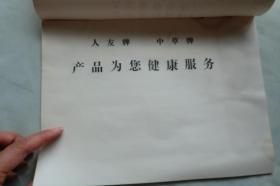 人友牌 中草牌
产品为您健康服务